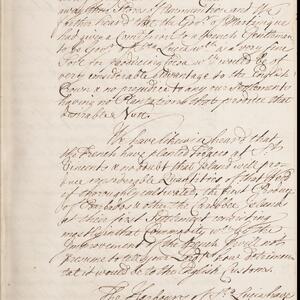 away their Stores of Ammunition and We
farther heard that the Gov.r of Martinique
had given a Commission to a French Gentleman
to be Gov.r of S.ta Lucia w.ch is a very fine
Isle for producing Cocoa w.ch would be of
very considerable advantage to the English
Crown & no prejudice to any our Settlements
having no Plantations that produce that
valuable Nutt.
We have likewise heard that
the French have planted Tobacco at S.t
Vincents & no doubt that Island will pro-
duce considerable Quantities of that Weed
if thoroughly cultivated, the first Produce
of Barbados & other the Caribbee Islands
at their first Settlement consisting
mostly in that Commodity w.ch by the
Improvement of the French I will not
presume to tell your Lord.ps how detrimen-
tal it would be to the English Customs.
The Harbour of S.ta Lucia have